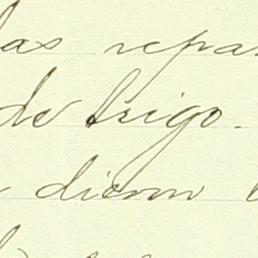 las repar
de trigo.
dieron